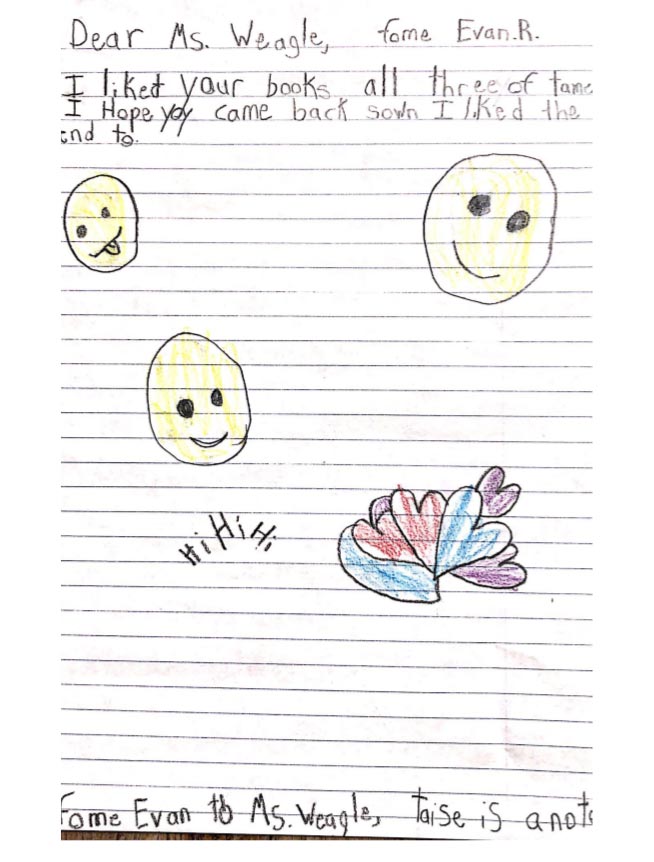 Dear Ms. Weagle, fome Evan.R.
I liked your books all three of tame
I Hope yoy came back sown I liked the
end to.
Hi Hi Hi
fome Evan to Ms. Weagle, taise is a note